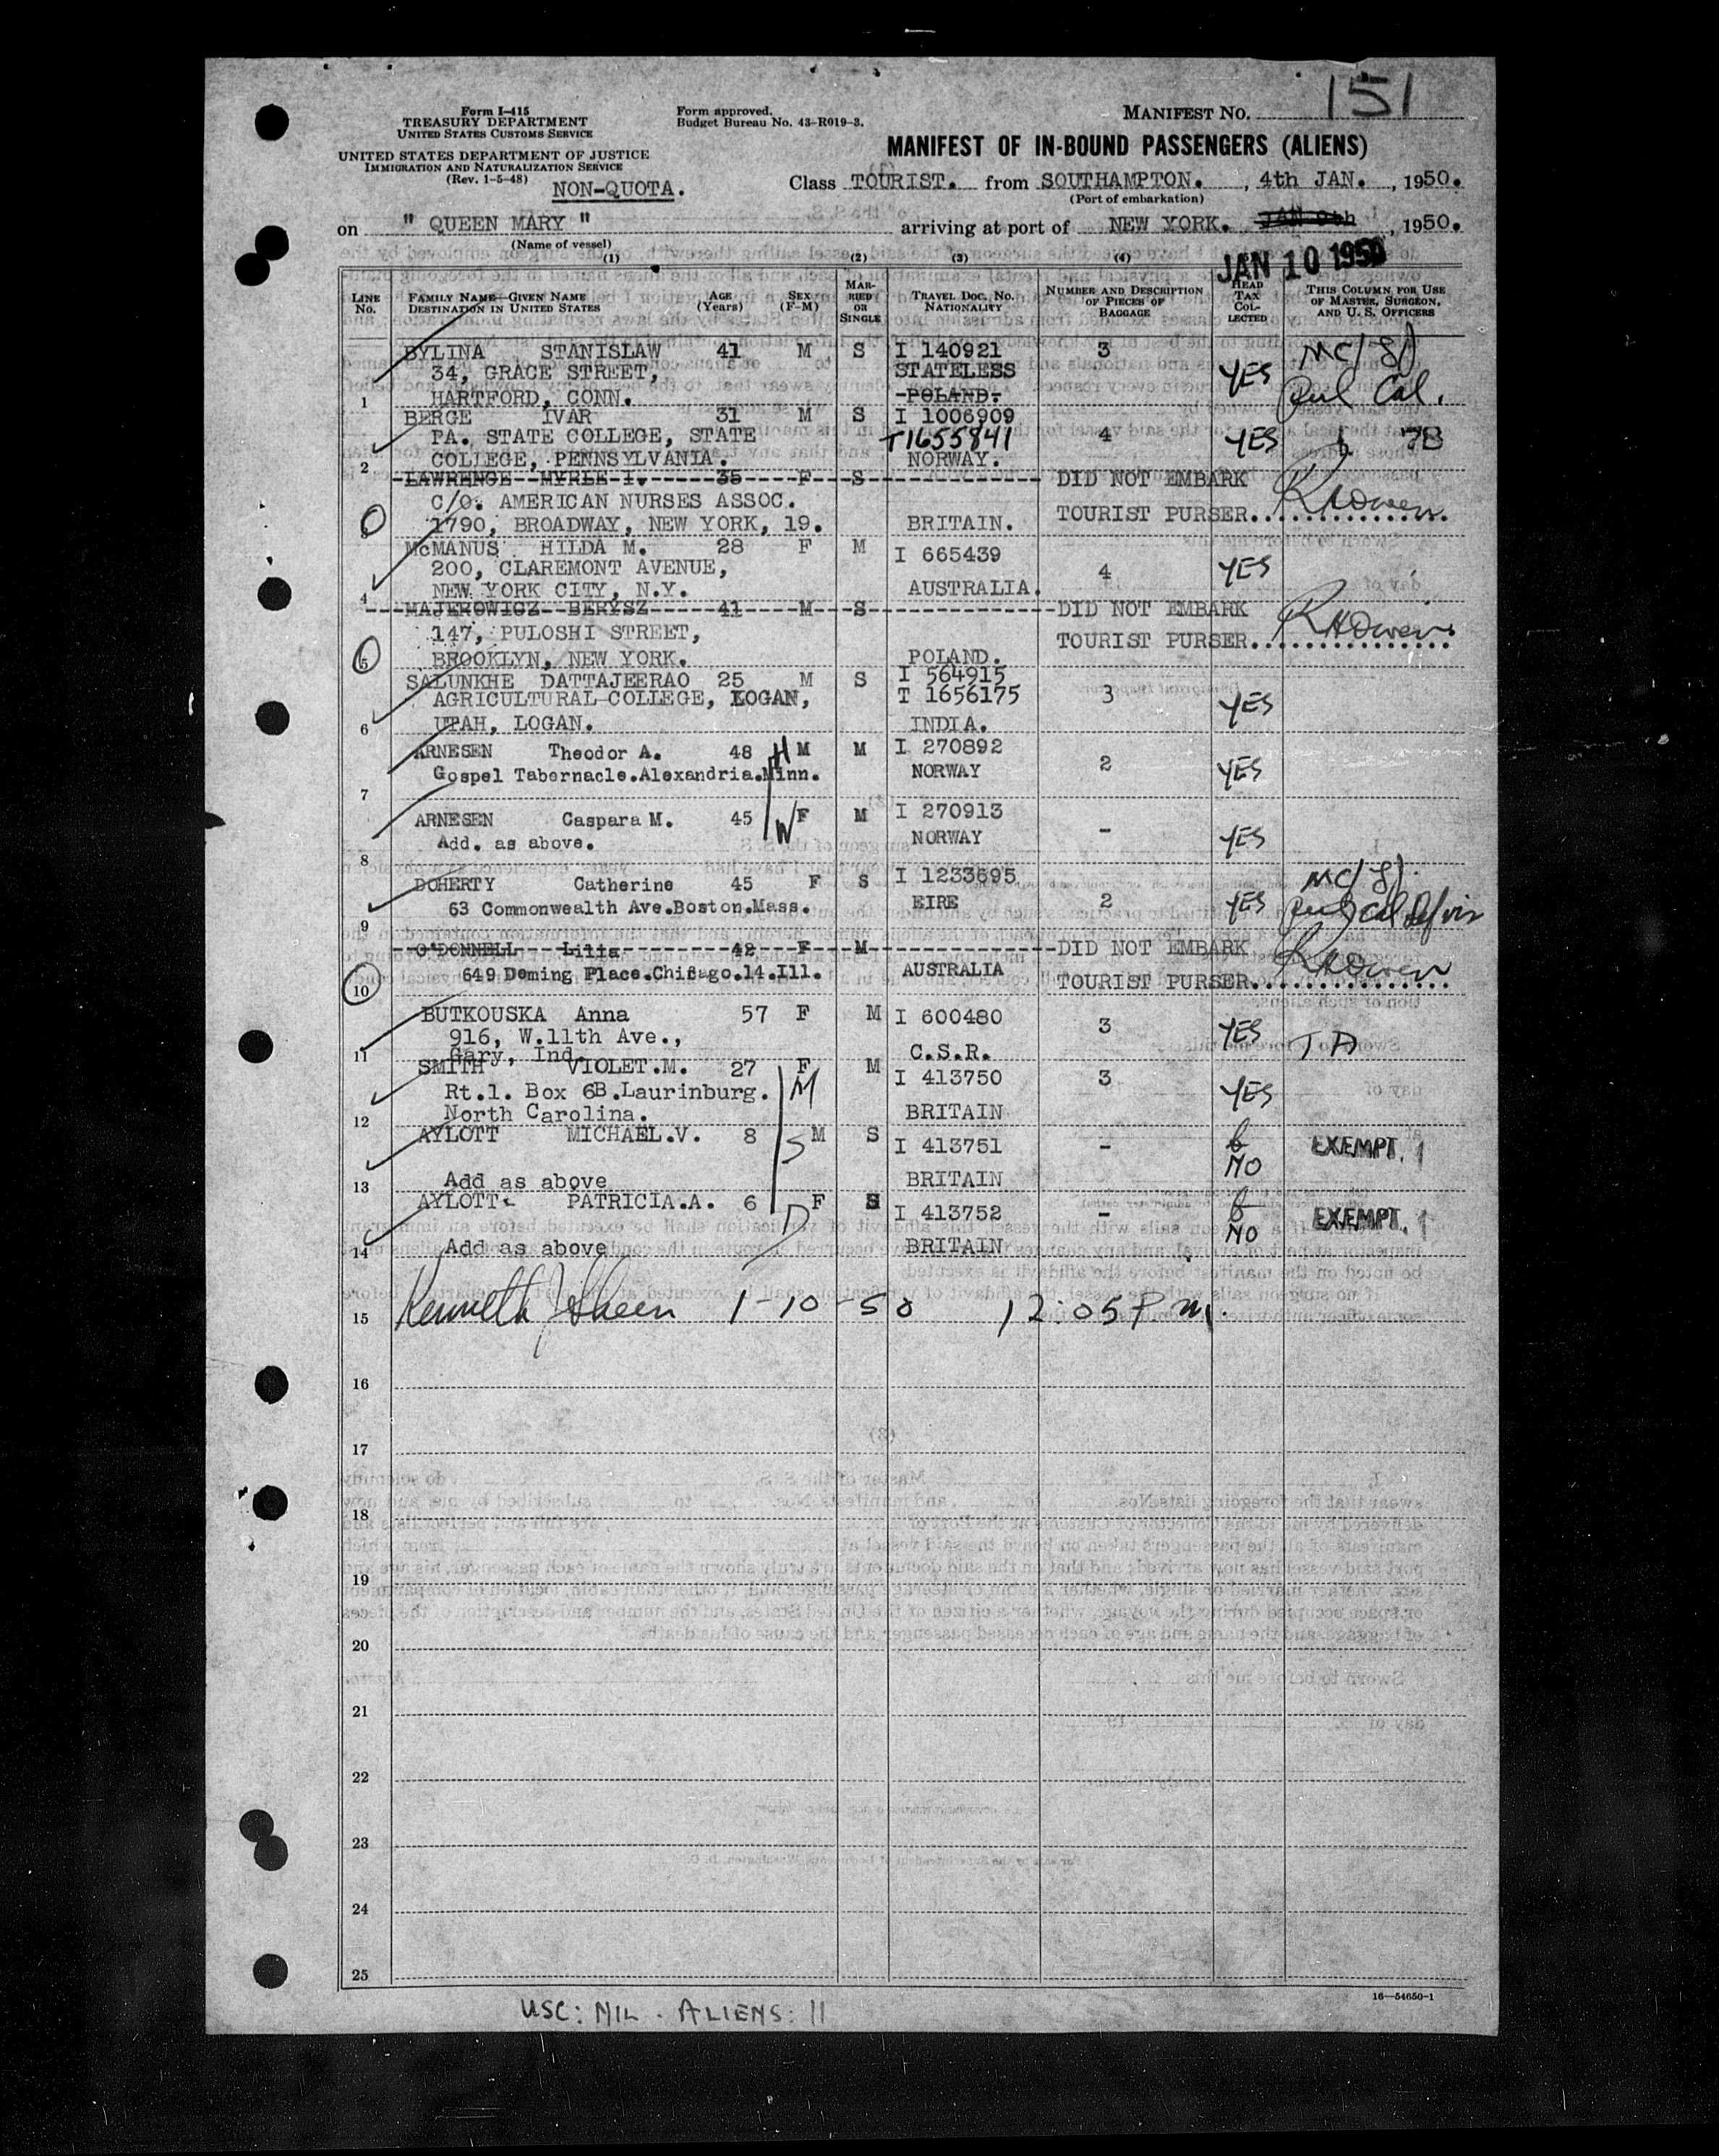 151
Form I-415
TREASURY DEPARTMENT
UNITED STATES CUSTOMS SERVICE
UNITED STATES DEPARTMENT OF JUSTICE
IMMIGRATION AND NATURALIZATION SERVICE
(Rev. 1-5-48)
NON-QUOTA.
Form approved.
Budget Bureau No. 43-R019-3.
MANIFEST No.
MANIFEST OF IN-BOUND PASSENGERS (ALIENS)
Class TOURIST. from SOUTHAMPTON. , 4th JAN. , 1950.
(Port of embarkation)
on " QUEEN MARY " arriving at port of NEW YORK. JAN 9th , 1950.
(Name of vessel)
JAN 10 1950
(1) (2) (3) (4)
LINE No. FAMILY NAME—GIVEN NAME DESTINATION IN UNITED STATES AGE (Years) SEX (F-M) MARRIED OR SINGLE TRAVEL DOC. No. NATIONALITY NUMBER AND DESCRIPTION OF PIECES OF BAGGAGE HEAD TAX COLLECTED THIS COLUMN FOR USE OF MASTER, SURGEON, AND U. S. OFFICERS
BYLINA STANISLAW 41 M S I 140921 3
34, GRACE STREET, STATELESS YES
1 HARTFORD, CONN. POLAND. Cal.
BERGE IVAR 31 M S I 1006909
PA. STATE COLLEGE, STATE T1655841 4 YES
2 COLLEGE, PENNSYLVANIA. NORWAY.
LAWRENCE MYRLE I. 35 F S DID NOT EMBARK
C/O. AMERICAN NURSES ASSOC.
3 1790, BROADWAY, NEW YORK, 19. BRITAIN. TOURIST PURSER. RHOwen
McMANUS HILDA M. 28 F M I 665439
200, CLAREMONT AVENUE, 4 YES
4 NEW YORK CITY, N.Y. AUSTRALIA.
MAJEROWICZ BERYSZ 41 M S DID NOT EMBARK
147, PULOSHI STREET, TOURIST PURSER. RHOwen
5 BROOKLYN, NEW YORK. POLAND.
SALUNKHE DATTAJEERAO 25 M S I 564915
AGRICULTURAL COLLEGE, LOGAN, T 1656175 3 YES
6 UTAH, LOGAN. INDIA.
ARNESEN Theodor A. 48 H M M I 270892 2
7 Gospel Tabernacle.Alexandria.Minn. NORWAY YES
ARNESEN Caspara M. 45 W F M I 270913 -
8 Add. as above. NORWAY YES
DOHERTY Catherine 45 F S I 1233695
9 63 Commonwealth Ave.Boston.Mass. EIRE 2 YES
O'DONNELL Lilia 42 F M DID NOT EMBARK
10 649 Deming Place.Chicago.14.Ill. AUSTRALIA TOURIST PURSER. RHOwen
BUTKOUSKA Anna 57 F M I 600480 3
916, W.11th Ave., YES
11 Gary, Ind. C.S.R.
SMITH VIOLET.M. 27 F M I 413750 3
Rt.1. Box 6B.Laurinburg. M YES
12 North Carolina. BRITAIN
AYLOTT MICHAEL.V. 8 S M S I 413751 - NO EXEMPT.
13 Add as above BRITAIN
AYLOTT PATRICIA.A. 6 D F S I 413752 - NO EXEMPT.
14 Add as above BRITAIN
15 Kenneth 1-10-50 12:05 P.m.
16
17
18
19
20
21
22
23
24
25
16—54650-1
USC: NIL - ALIENS: 11